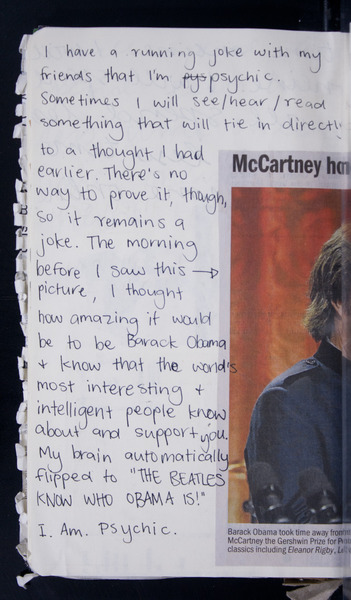 I have a running joke with my
friends that I'm pys psychic.
Sometimes I will see/hear/read
something that will tie in directly
to a thought I had
earlier. There's no
way to prove it, though,
so it remains a
joke. The morning
before I saw this →
picture, I thought
how amazing it would
be to be Barack Obama
+ know that the world's
most interesting +
intelligent people know
about and support you.
My brain automatically
flipped to "THE BEATLES
KNOW WHO OBAMA IS!"
I. Am. Psychic.
McCartney
Barack Obama took time away from
McCartney the Gershwin Prize for
classics including Eleanor Rigby,